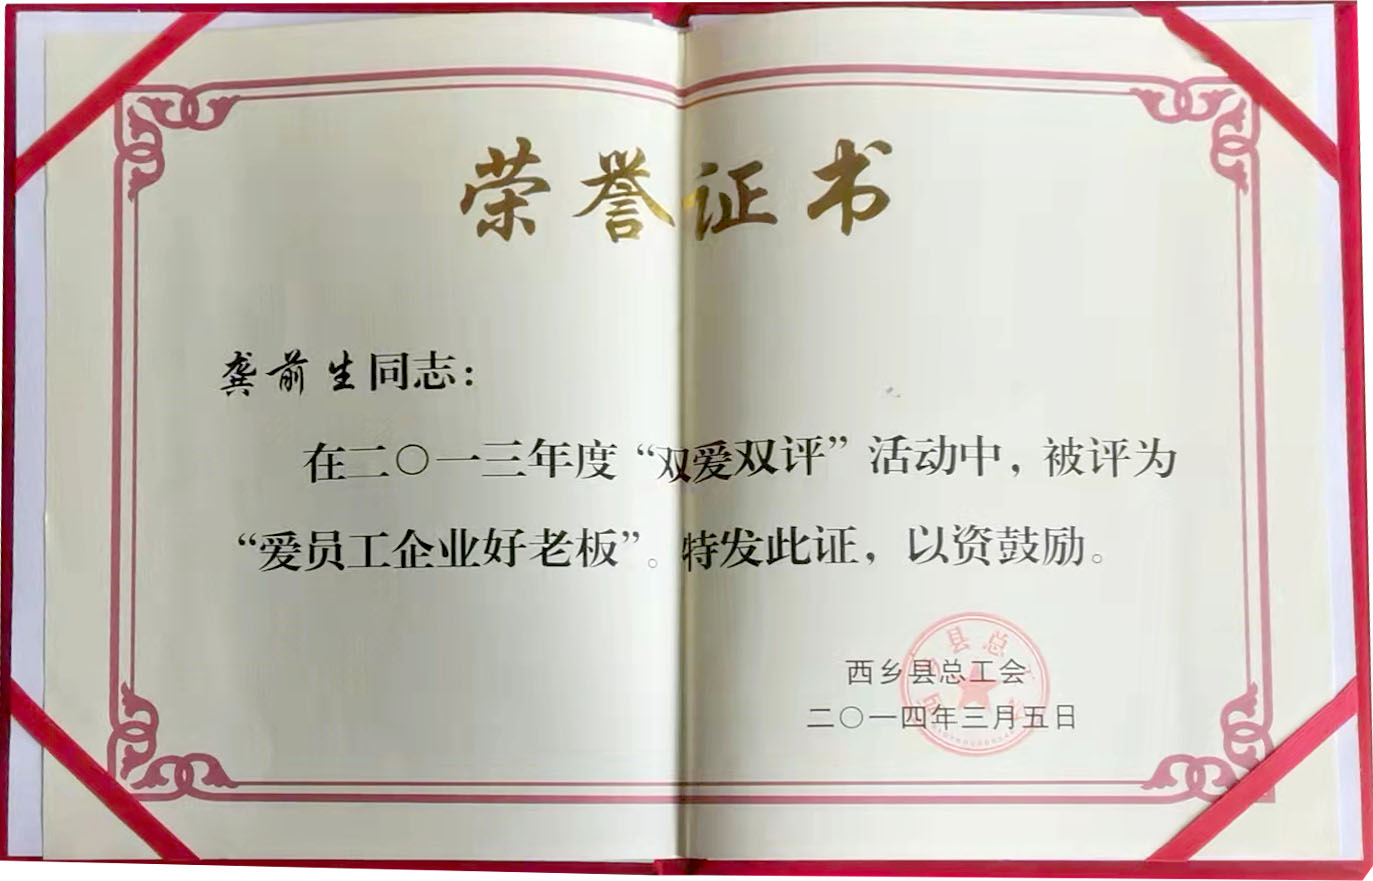 荣誉证书
龚前生同志：
在二〇一三年度“双爱双评”活动中，被评为
“爱员工企业好老板”。特发此证，以资鼓励。
西乡县总工会
二〇一四年三月五日